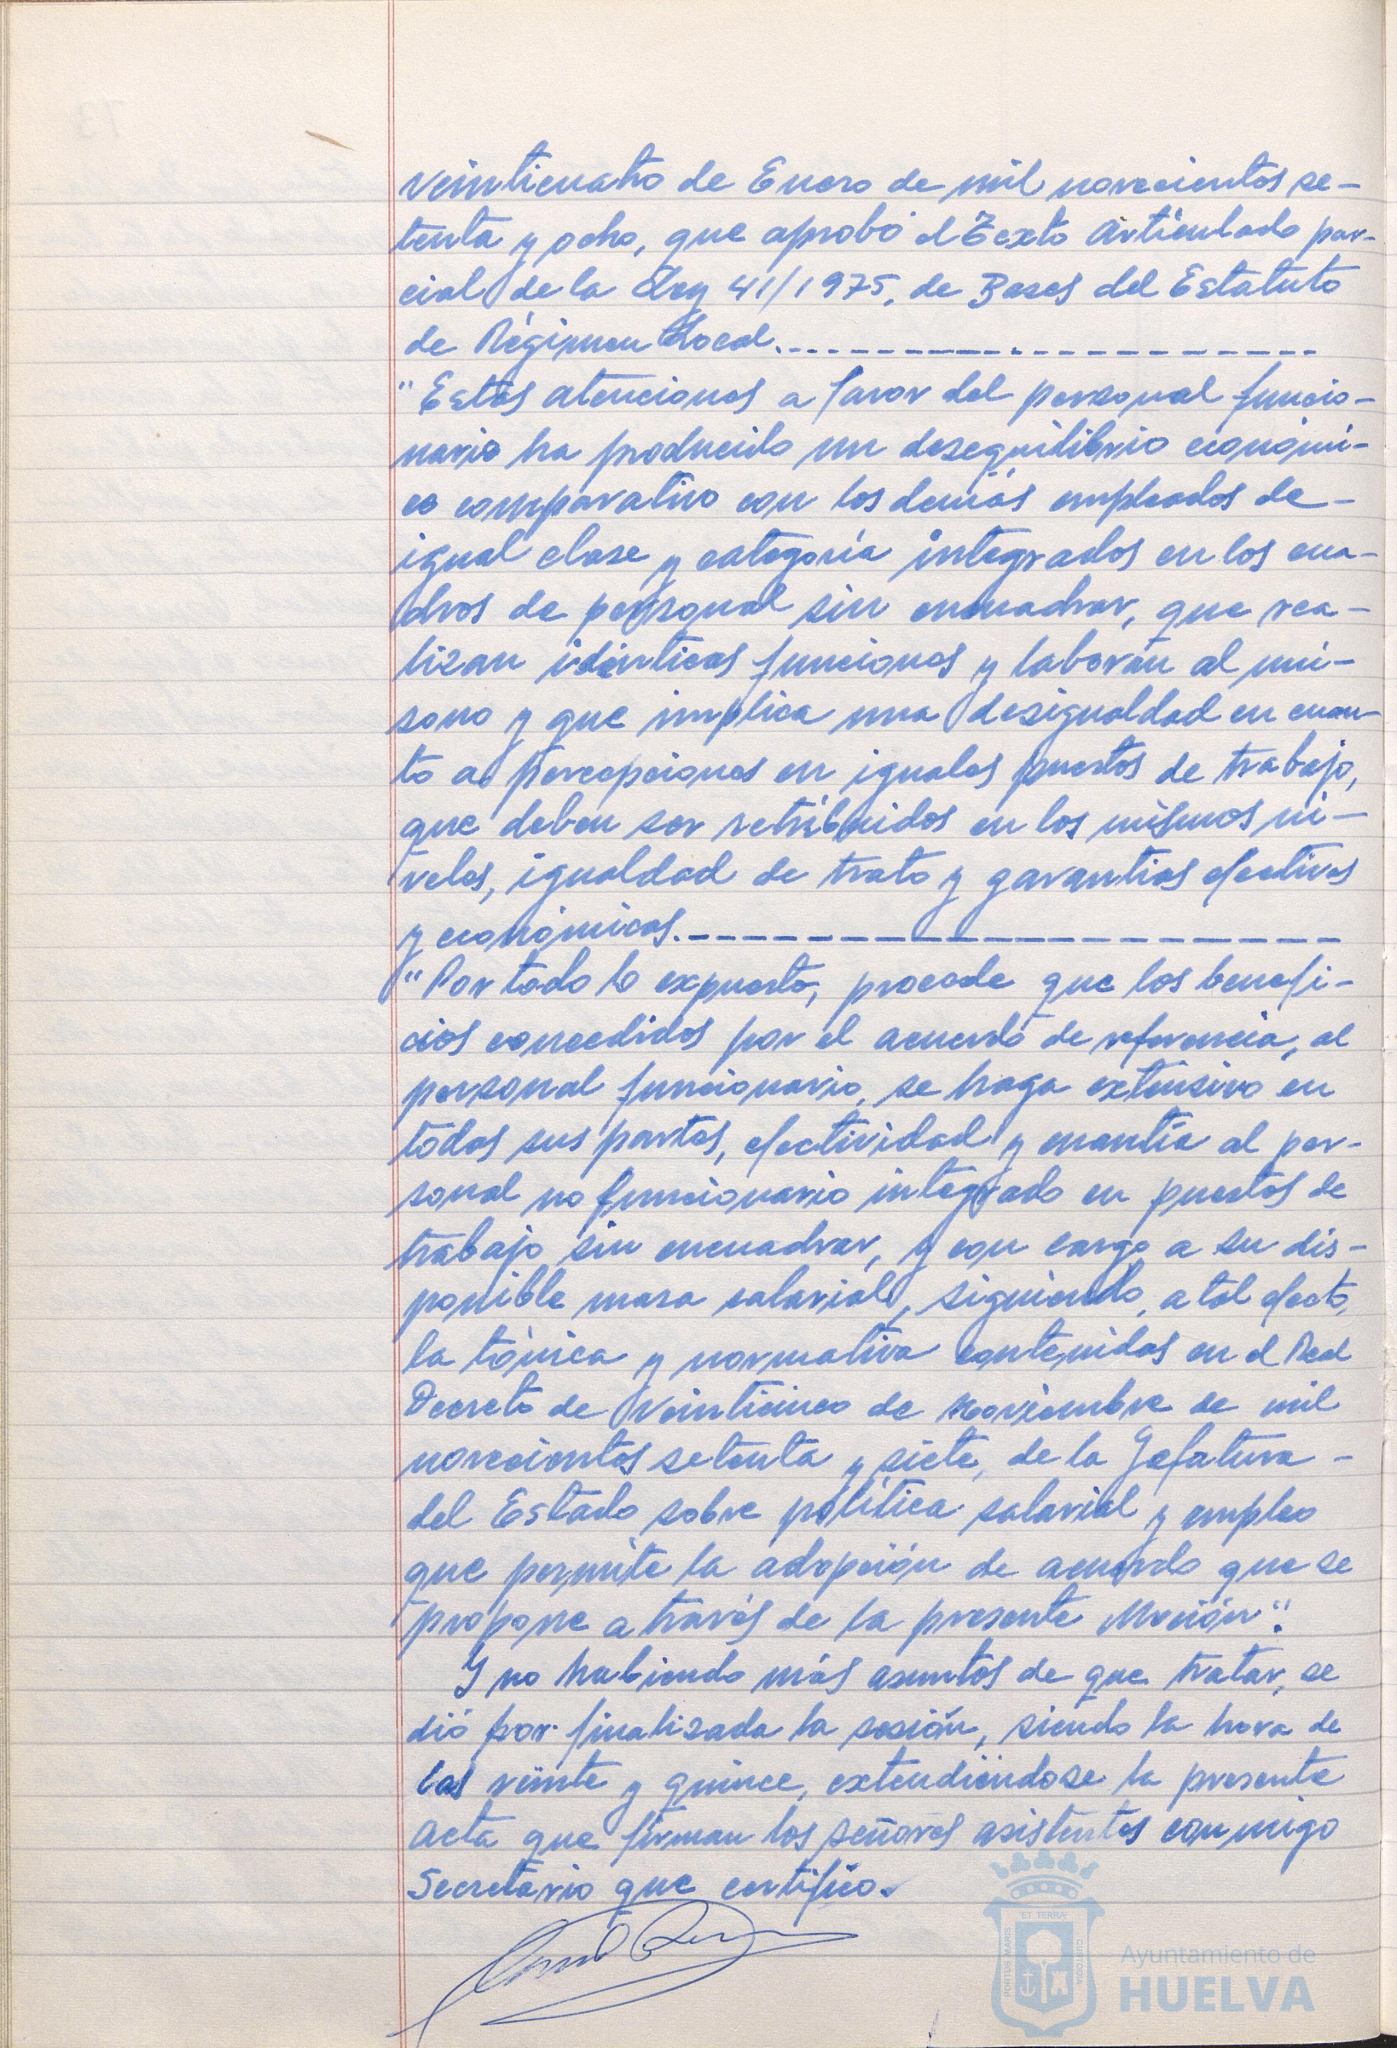 veinticuatro de Enero de mil novecientos se-
tenta y ocho, que aprobó el Texto articulado par-
cial de la Ley 41/1975, de Bases del Estatuto
de Régimen Local.
"Estas atenciones a favor del personal funcio-
nario ha producido un desequilibrio económi-
co comparativo con los demás empleados de-
igual clase y categoría integrados en los cua-
dros de personal sin encuadrar, que rea-
lizan idénticas funciones y laboran al uní-
sono y que implica una desigualdad en cuan-
to a percepciones en iguales puestos de trabajo,
que deben ser retribuidos en los mismos ni-
veles, igualdad de trato y garantías efectivas
y económicas.
"Por todo lo expuesto, procede que los benefi-
cios concedidos por el acuerdo de referencia, al
personal funcionario, se haga extensivo en
todas sus partes, efectividad y cuantía al per-
sonal no funcionario integrado en puestos de
trabajo sin encuadrar, y con cargo a su dis-
ponible masa salarial, siguiendo, a tal efecto,
la tónica y normativa contenidas en el Real
Decreto de veinticinco de noviembre de mil
novecientos setenta y siete, de la Jefatura -
del Estado sobre política salarial y empleo
que permite la adopción de acuerdo que se
propone a través de la presente Moción".
Y no habiendo más asuntos de que tratar, se
dió por finalizada la sesión, siendo la hora de
las veinte y quince, extendiéndose la presente
acta que firman los señores asistentes conmigo
Secretario que certifico.
ET TERRAE
PORTUS MARIS
CUSTODIA
Ayuntamiento de
HUELVA